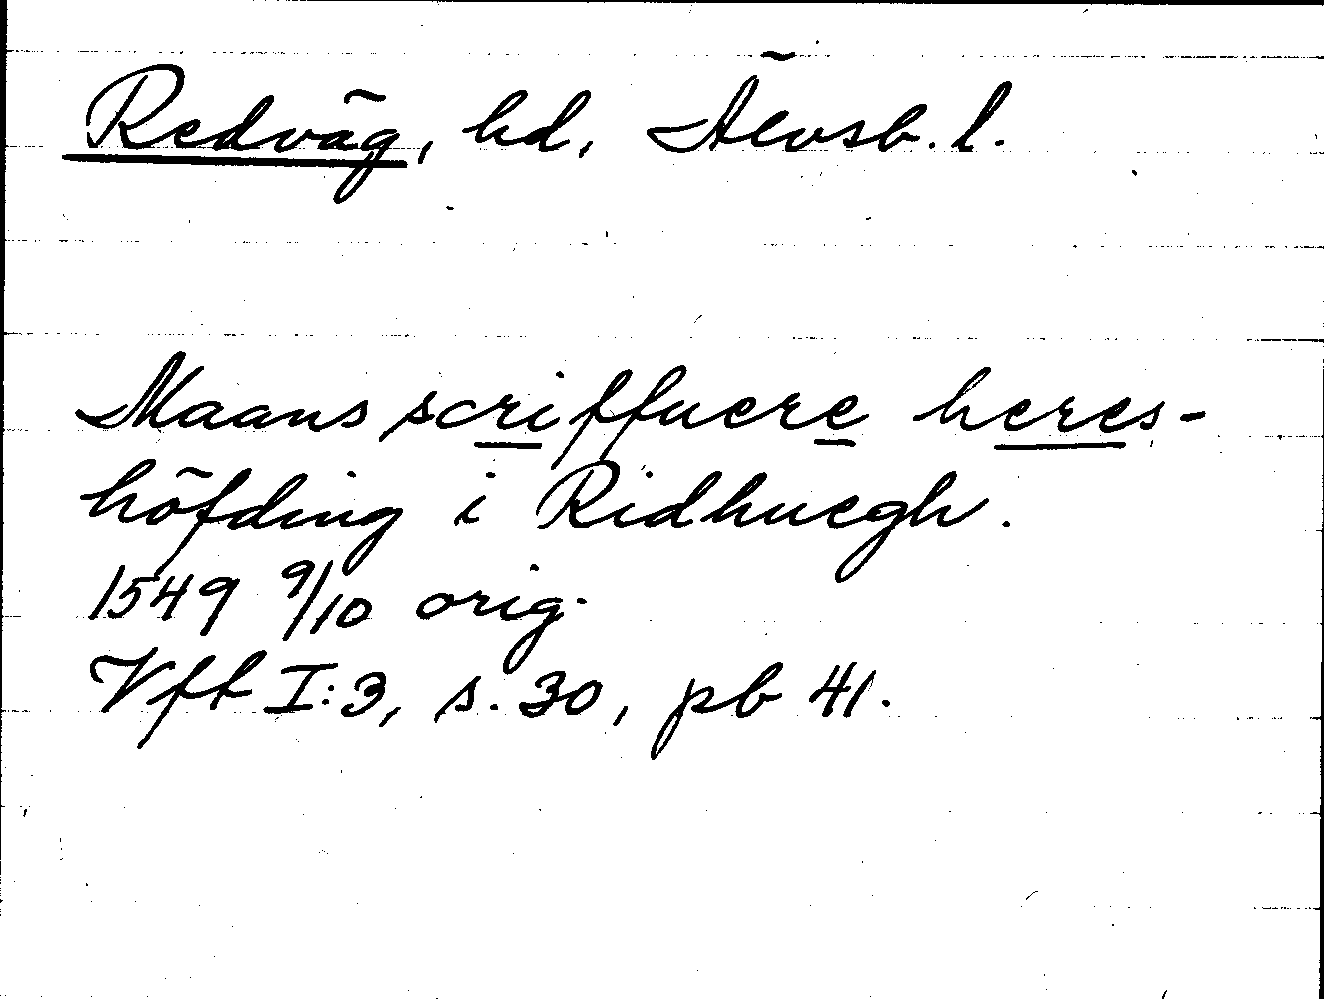 Redväg, hd, Älvsb. l.
Maans scriffuere heres-
höfding i Ridhuegh.
1549 9/10 orig.
Vft I:3, s. 30, pb 41.